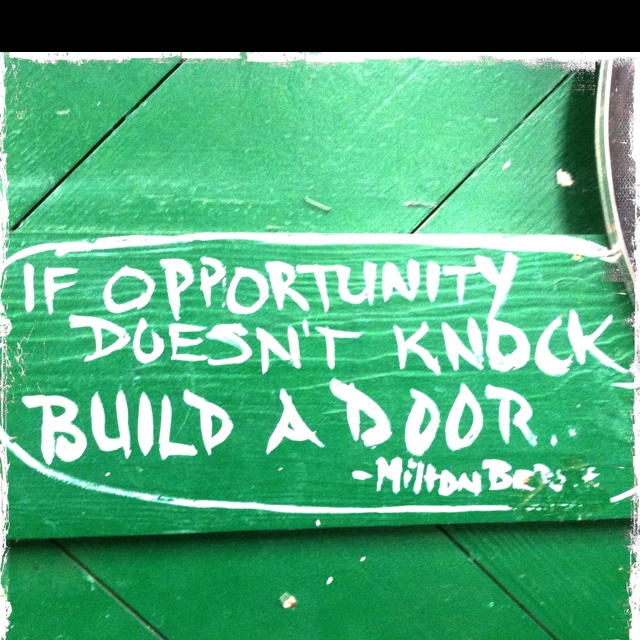 IF OPPORTUNITY
DOESN'T KNOCK
BUILD A DOOR..
-Milton